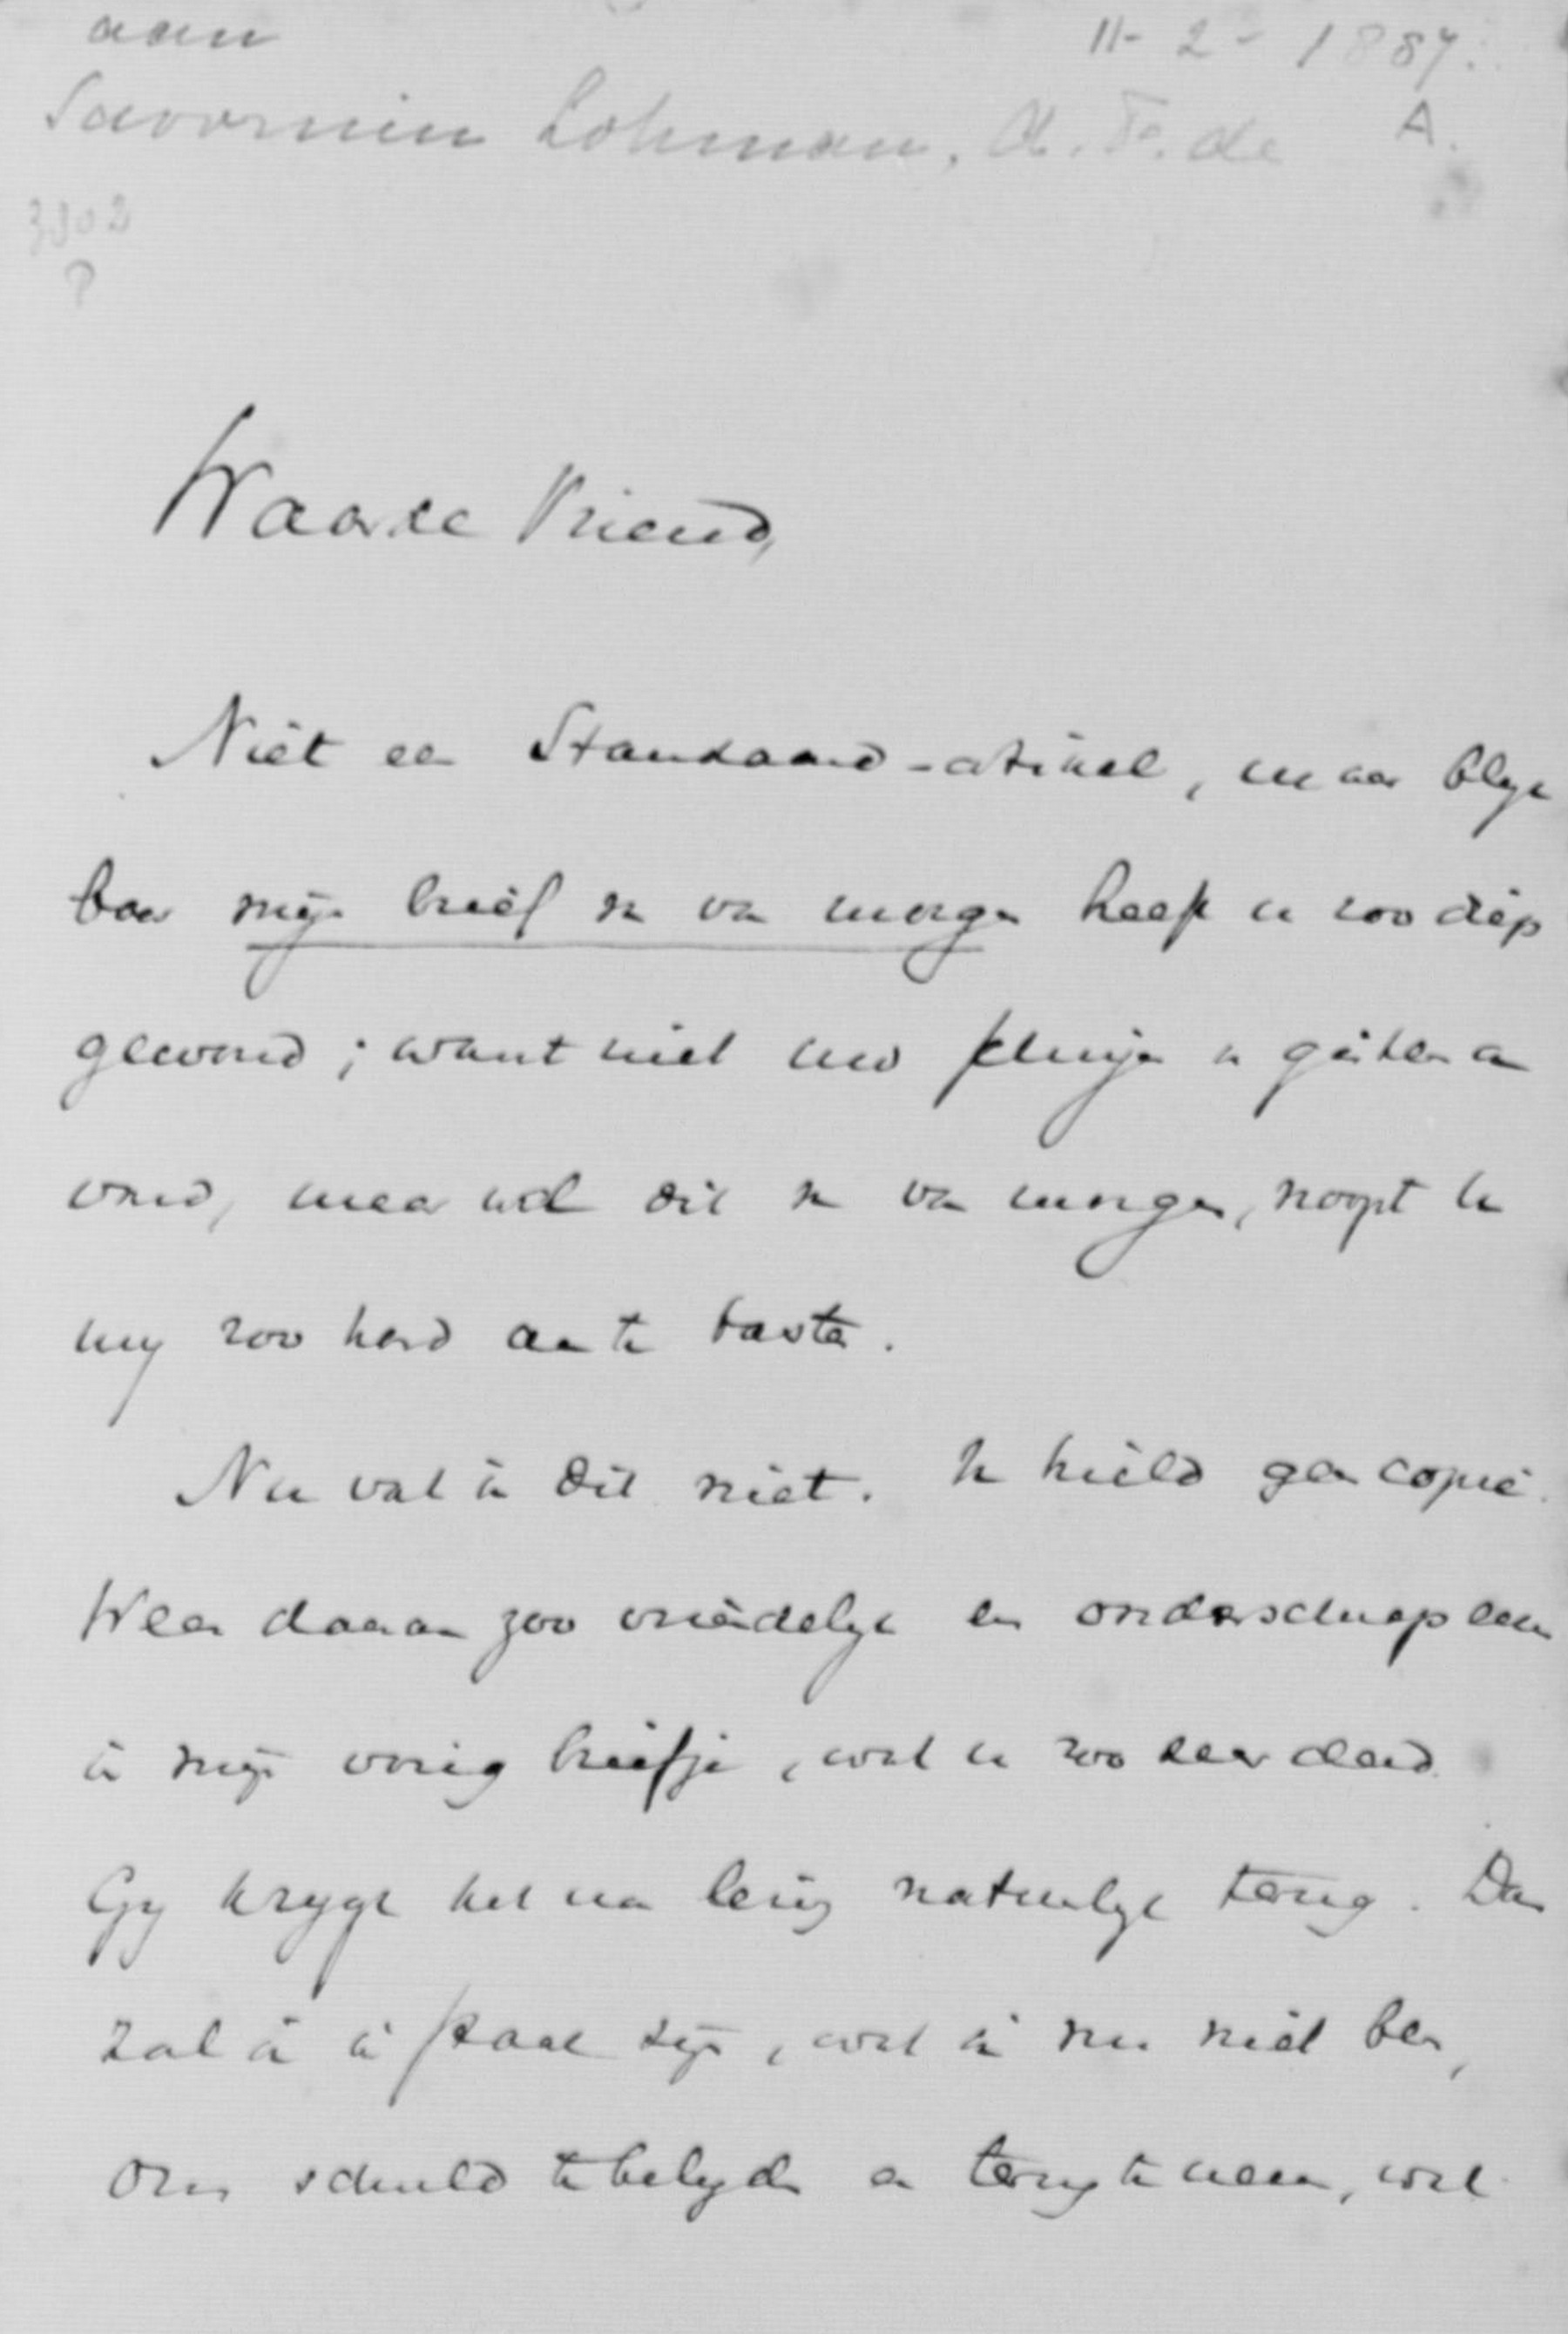 aan 11-2-1887.
Savornin Lohman, A. F. de A.
3302
P
Waarde Vriend,
Niet een Standaard-artikel, maar blijk
baar mijn brief van van morgen heeft u zoo diep
gewond; want niet uw schrijven van gisteren a
vond, maar wel dit van van morgen, noopt u
mij zoo hard aan te tasten.
Nu vat ik dit niet. Ik hield geen copie.
Wees daarom zoo vriendelijk en onderschrap een
in mijn vorig briefje, wat u zoo zeer deed.
Gij krijgt het na lezing natuurlijk terug. Dan
zal ik in staat zijn, wat ik nu niet ben,
om schuld te belijden en terug te nemen, wat